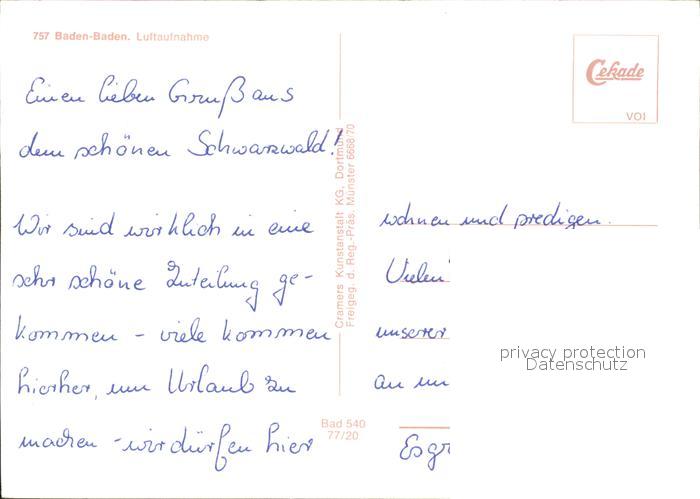 757 Baden-Baden. Luftaufnahme
Cekade
VOI
Einen lieben Gruß aus
dem schönen Schwarzwald!
Wir sind wirklich in eine
sehr schöne Zuteilung ge-
kommen - viele kommen
hierher, um Urlaub zu
machen - wir dürfen hier
Cramers Kunstanstalt KG, Dortmund
Freigeg. d. Reg.-Präs. Münster 6668/70
Bad 540
77/20
wohnen und predigen.
Vielen
unserer
an un
Es gr
privacy protection
Datenschutz